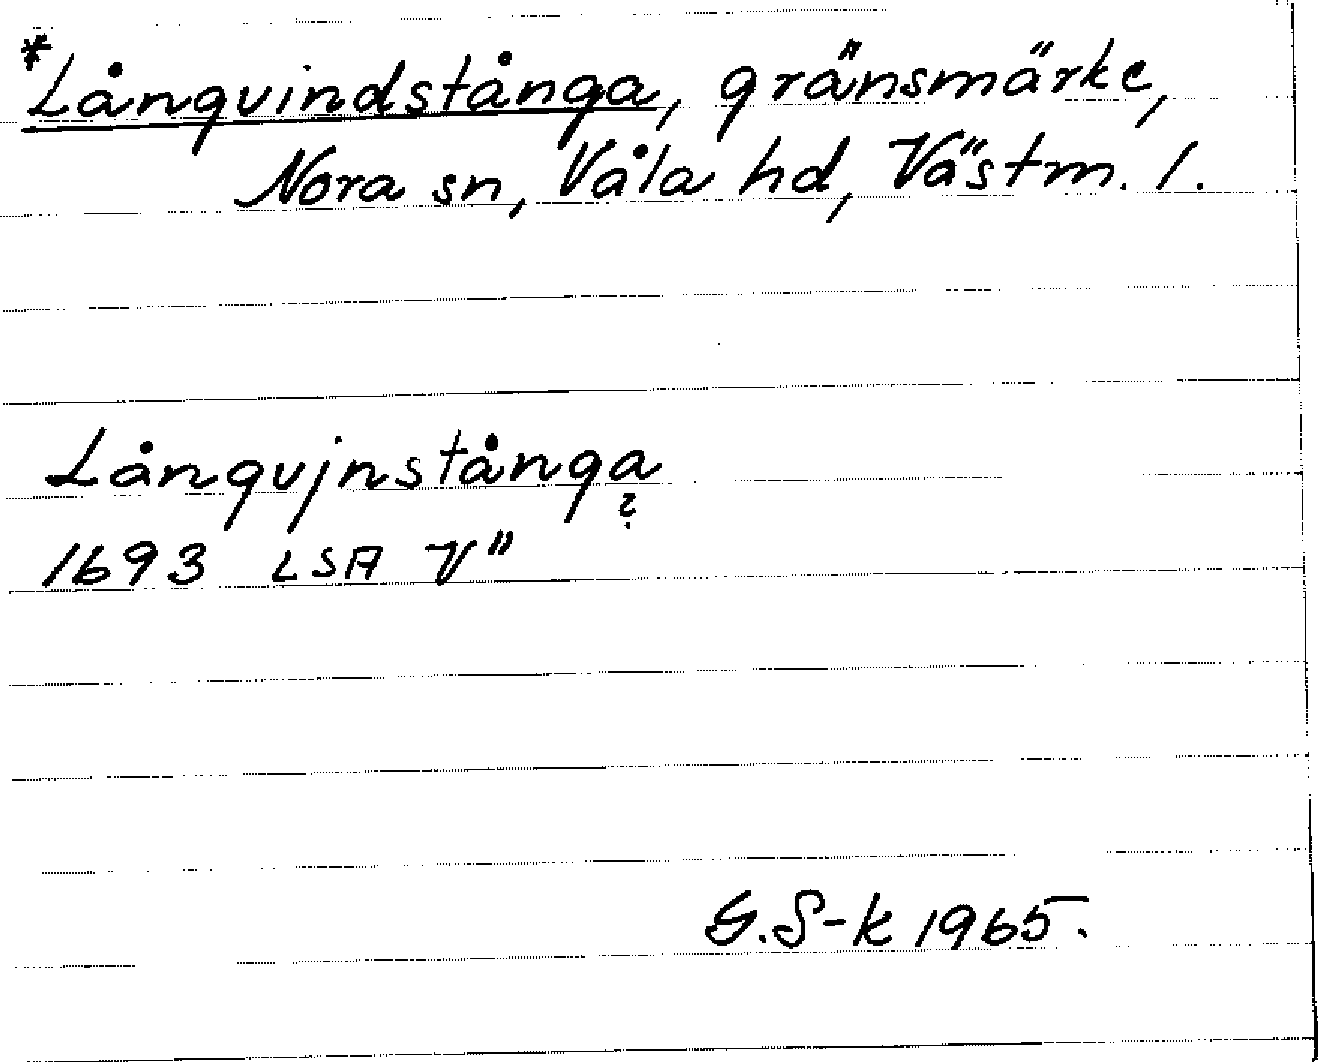 *Långvindstånga, gränsmärke,
Nora sn, Våla hd, Västm. l.
Långvjnstånga
?
1693 LSA V"
G.S-k 1965.